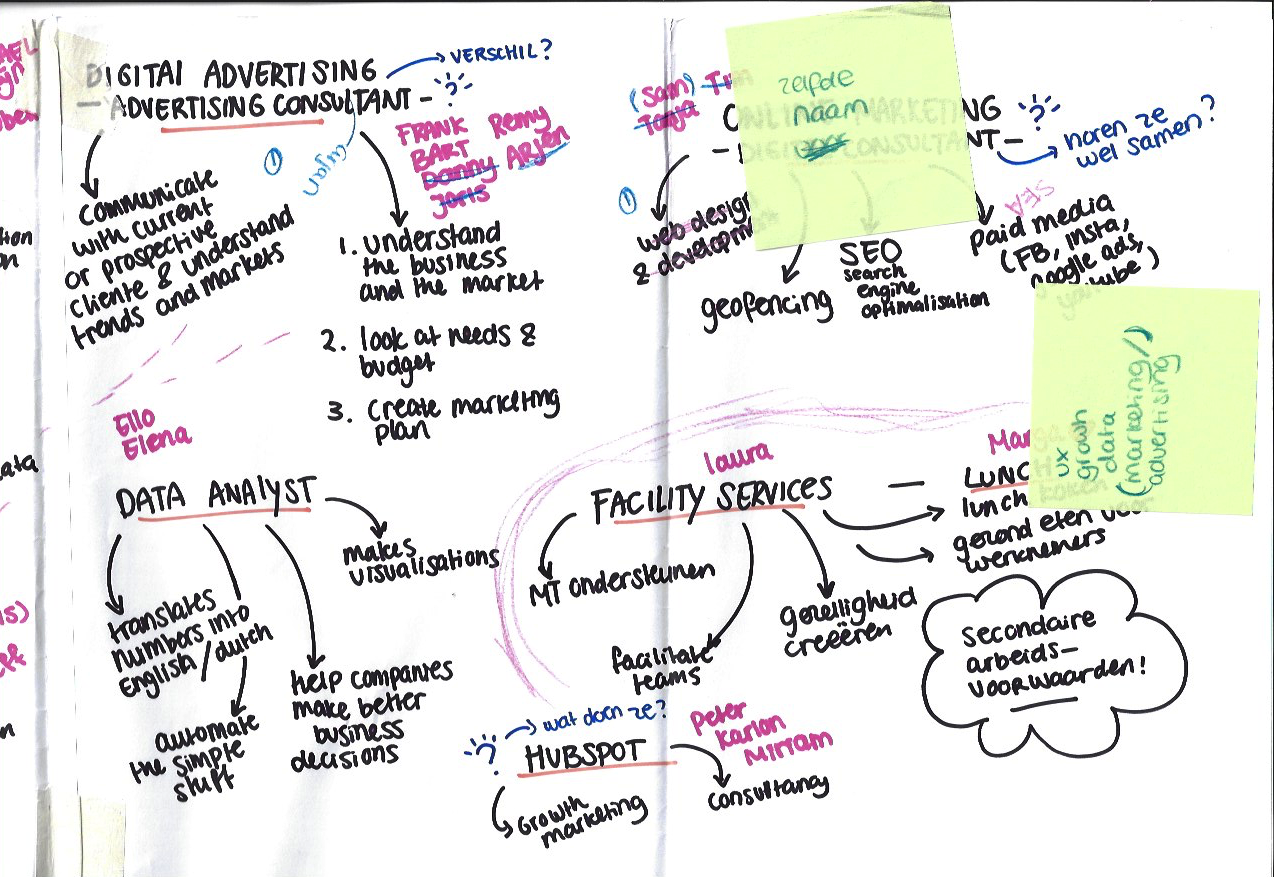 DIGITAL ADVERTISING
— ADVERTISING CONSULTANT —
→ VERSCHIL?
?
FRANK Remy
BART
Danny Arjen
Joris
1
communicate
with current
or prospective
cliente & understand
trends and markets
1. understand
the business
and the market
2. look at needs &
budget
3. create marketing
plan
zelfde
naam
(Sam)
Tanja
ONLINE MARKETING
DIGITAL CONSULTANT —
?
horen ze
wel samen?
1
web design
& development
geofencing
SEO
search
engine
optimalisation
SEA
paid media
(FB, insta,
google ads,
youtube)
UX
growh
data
(marketing/)
advertising
Ello
Elena
DATA ANALYST
makes
visualisations
translates
numbers into
english / dutch
automate
the simple
stuff
help companies
make better
business
decisions
laura
FACILITY SERVICES —
MT ondersteunen
facilitate
teams
gezelligheid
creëëren
LUNCH
lunch koken
gezond eten voor
werknemers
secondaire
arbeids-
voorwaarden!
→ wat doen ze?
?
HUBSPOT
Peter
Karlon
Mirram
Growth
marketing
consultancy